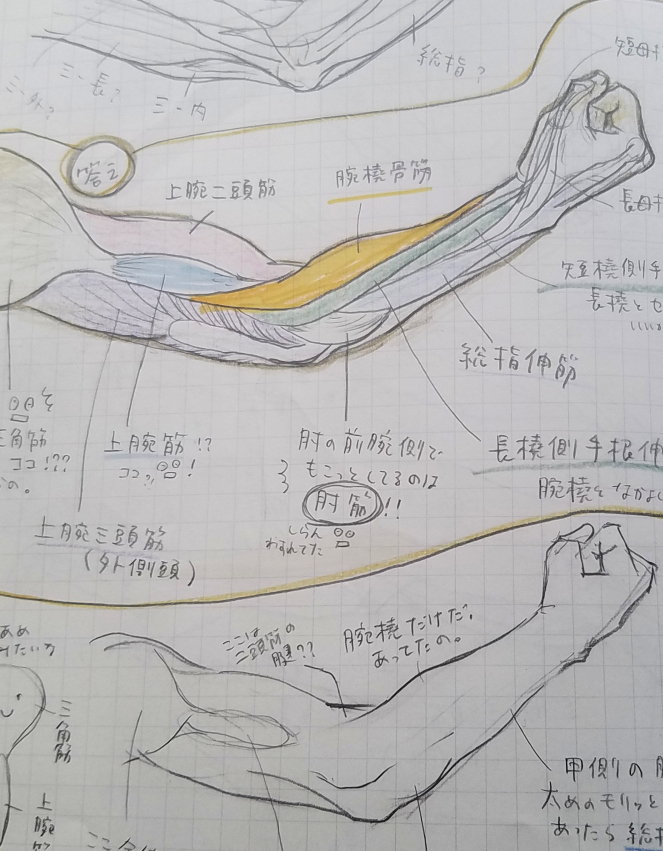 短母
総指?
三・長?
三・外?
三・内
答え
上腕二頭筋
腕橈骨筋
長母
短橈側手
長橈とセ
総指伸筋
三角筋
ココ!??
上腕筋!?
ココ?!
!
肘の前腕側で
もこっとしてるのは
肘筋!!
しらん
わすれてた
長橈側手根伸
腕橈となかよし
上腕三頭筋
(外側頭)
ここは
二頭筋の
腱??
腕橈だけだ、
あってたの。
みたいな
三角筋
上腕筋
甲側の
太めのモリッと
あったら総指